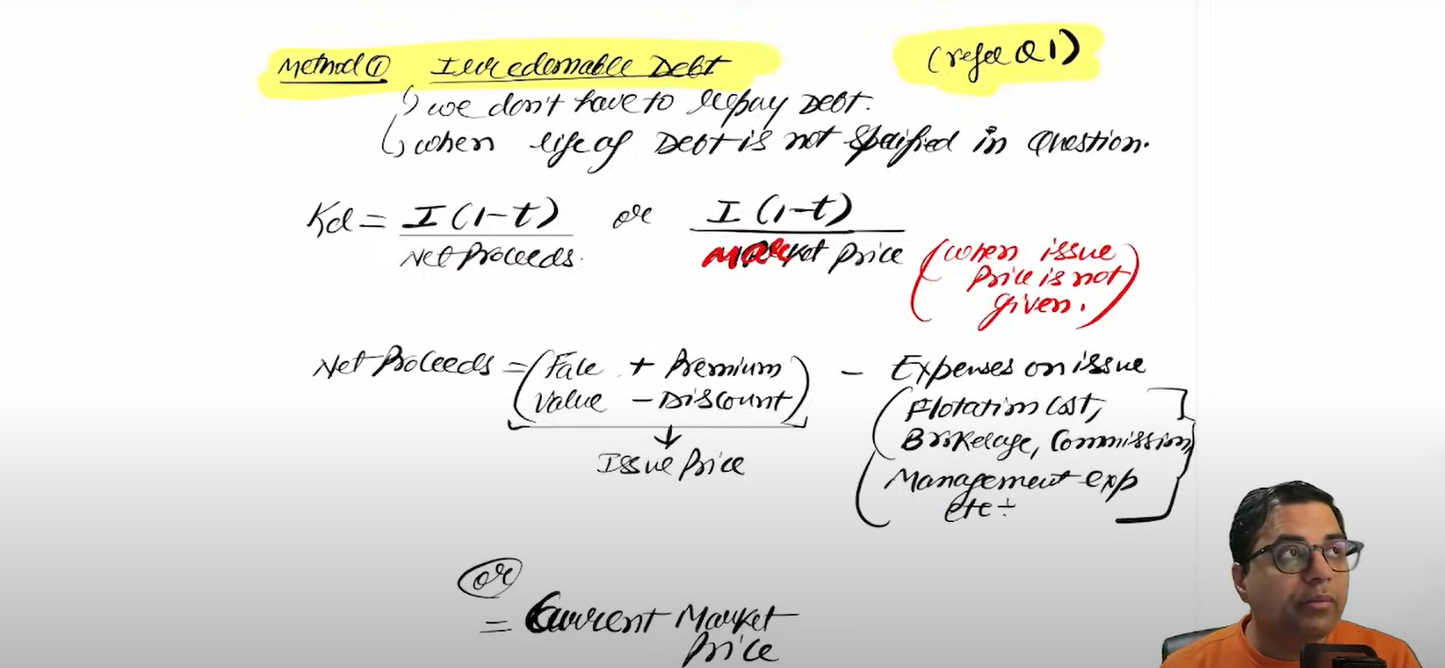 Method ① Irredemable Debt (refer Q 1)
↳ we don't have to repay Debt.
↳ when life of Debt is not specified in Question.
Kd = I (1-t) / Net Proceeds or I (1-t) / Market Price (when issue Price is not given.)
Net Proceeds = (Face Value + Premium - Discount) - Expenses on issue
↓
Issue Price
(Flotation Cost,
Brokerage, Commission,
Management exp
etc ÷
(or)
= Current Market
Price